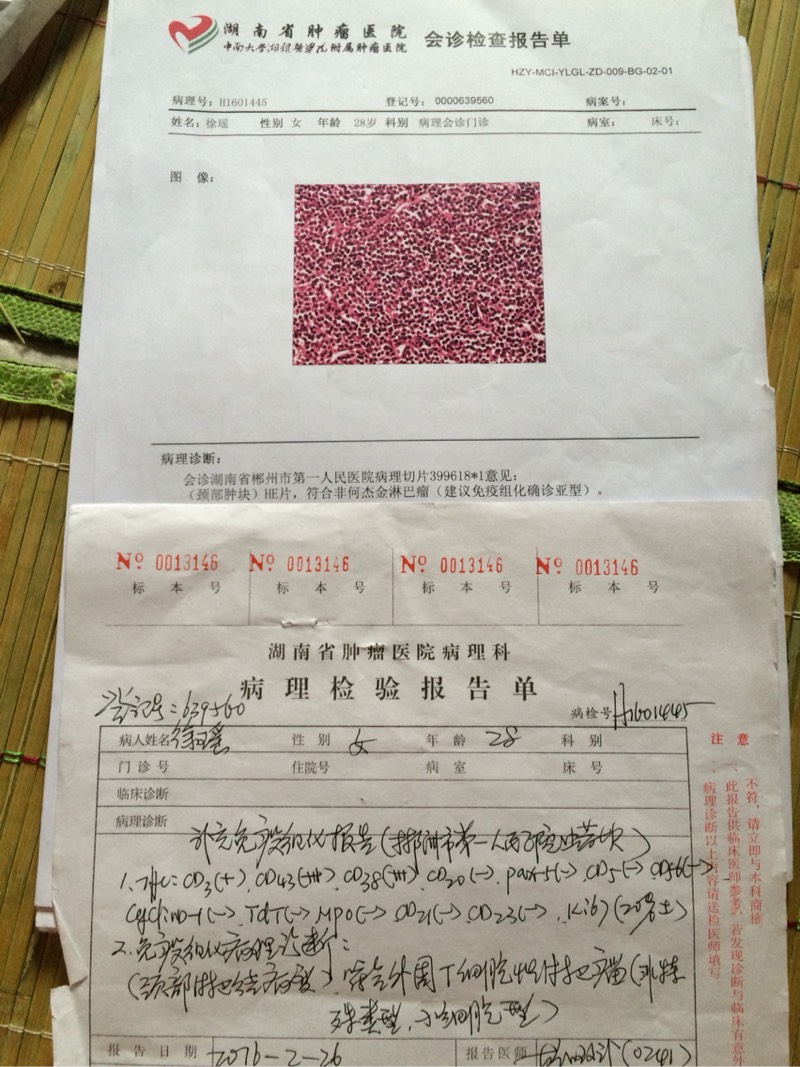 湖南省肿瘤医院
中南大学湘雅医学院附属肿瘤医院
会诊检查报告单
HZY-MCI-YLGL-ZD-009-BG-02-01
病理号：H1601445 登记号：0000639560 病案号：
姓名：徐瑶 性别 女 年龄 28岁 科别 病理会诊门诊 病室： 床号：
图 像：
病理诊断：
会诊湖南省郴州市第一人民医院病理切片399618*1意见：
（颈部肿块）HE片，符合非何杰金淋巴瘤（建议免疫组化确诊亚型）。
№ 0013146 № 0013146 № 0013146 № 0013146
标 本 号 标 本 号 标 本 号 标 本 号
湖南省肿瘤医院病理科
病 理 检 验 报 告 单
登记号：639560
病检号 H1601445
病人姓名 徐瑶 性 别 女 年 龄 28 科 别
门 诊 号 住院号 病 室 床 号
临床诊断
病理诊断
补充免疫组化报告（郴州市第一人民医院蜡块）
1. IHC: CD3(+), CD43(+++), CD38(+++), CD20(-), pax-5(-), CD5(-), CD56(-),
CyclinD-1(-), TdT(-), MPO(-), CD21(-), CD23(-), Ki67(20%±)
2. 免疫组化病理诊断：
（颈部淋巴结病变）符合外周T细胞性淋巴瘤（非特
殊类型，小细胞型）
报 告 日 期 2016-2-26 报告医师 (0241)
注 意
一、病理诊断以上内容请送检医师填写。
二、此报告供临床医师参考，若发现诊断与临床有意外
不符，请立即与本科商榷